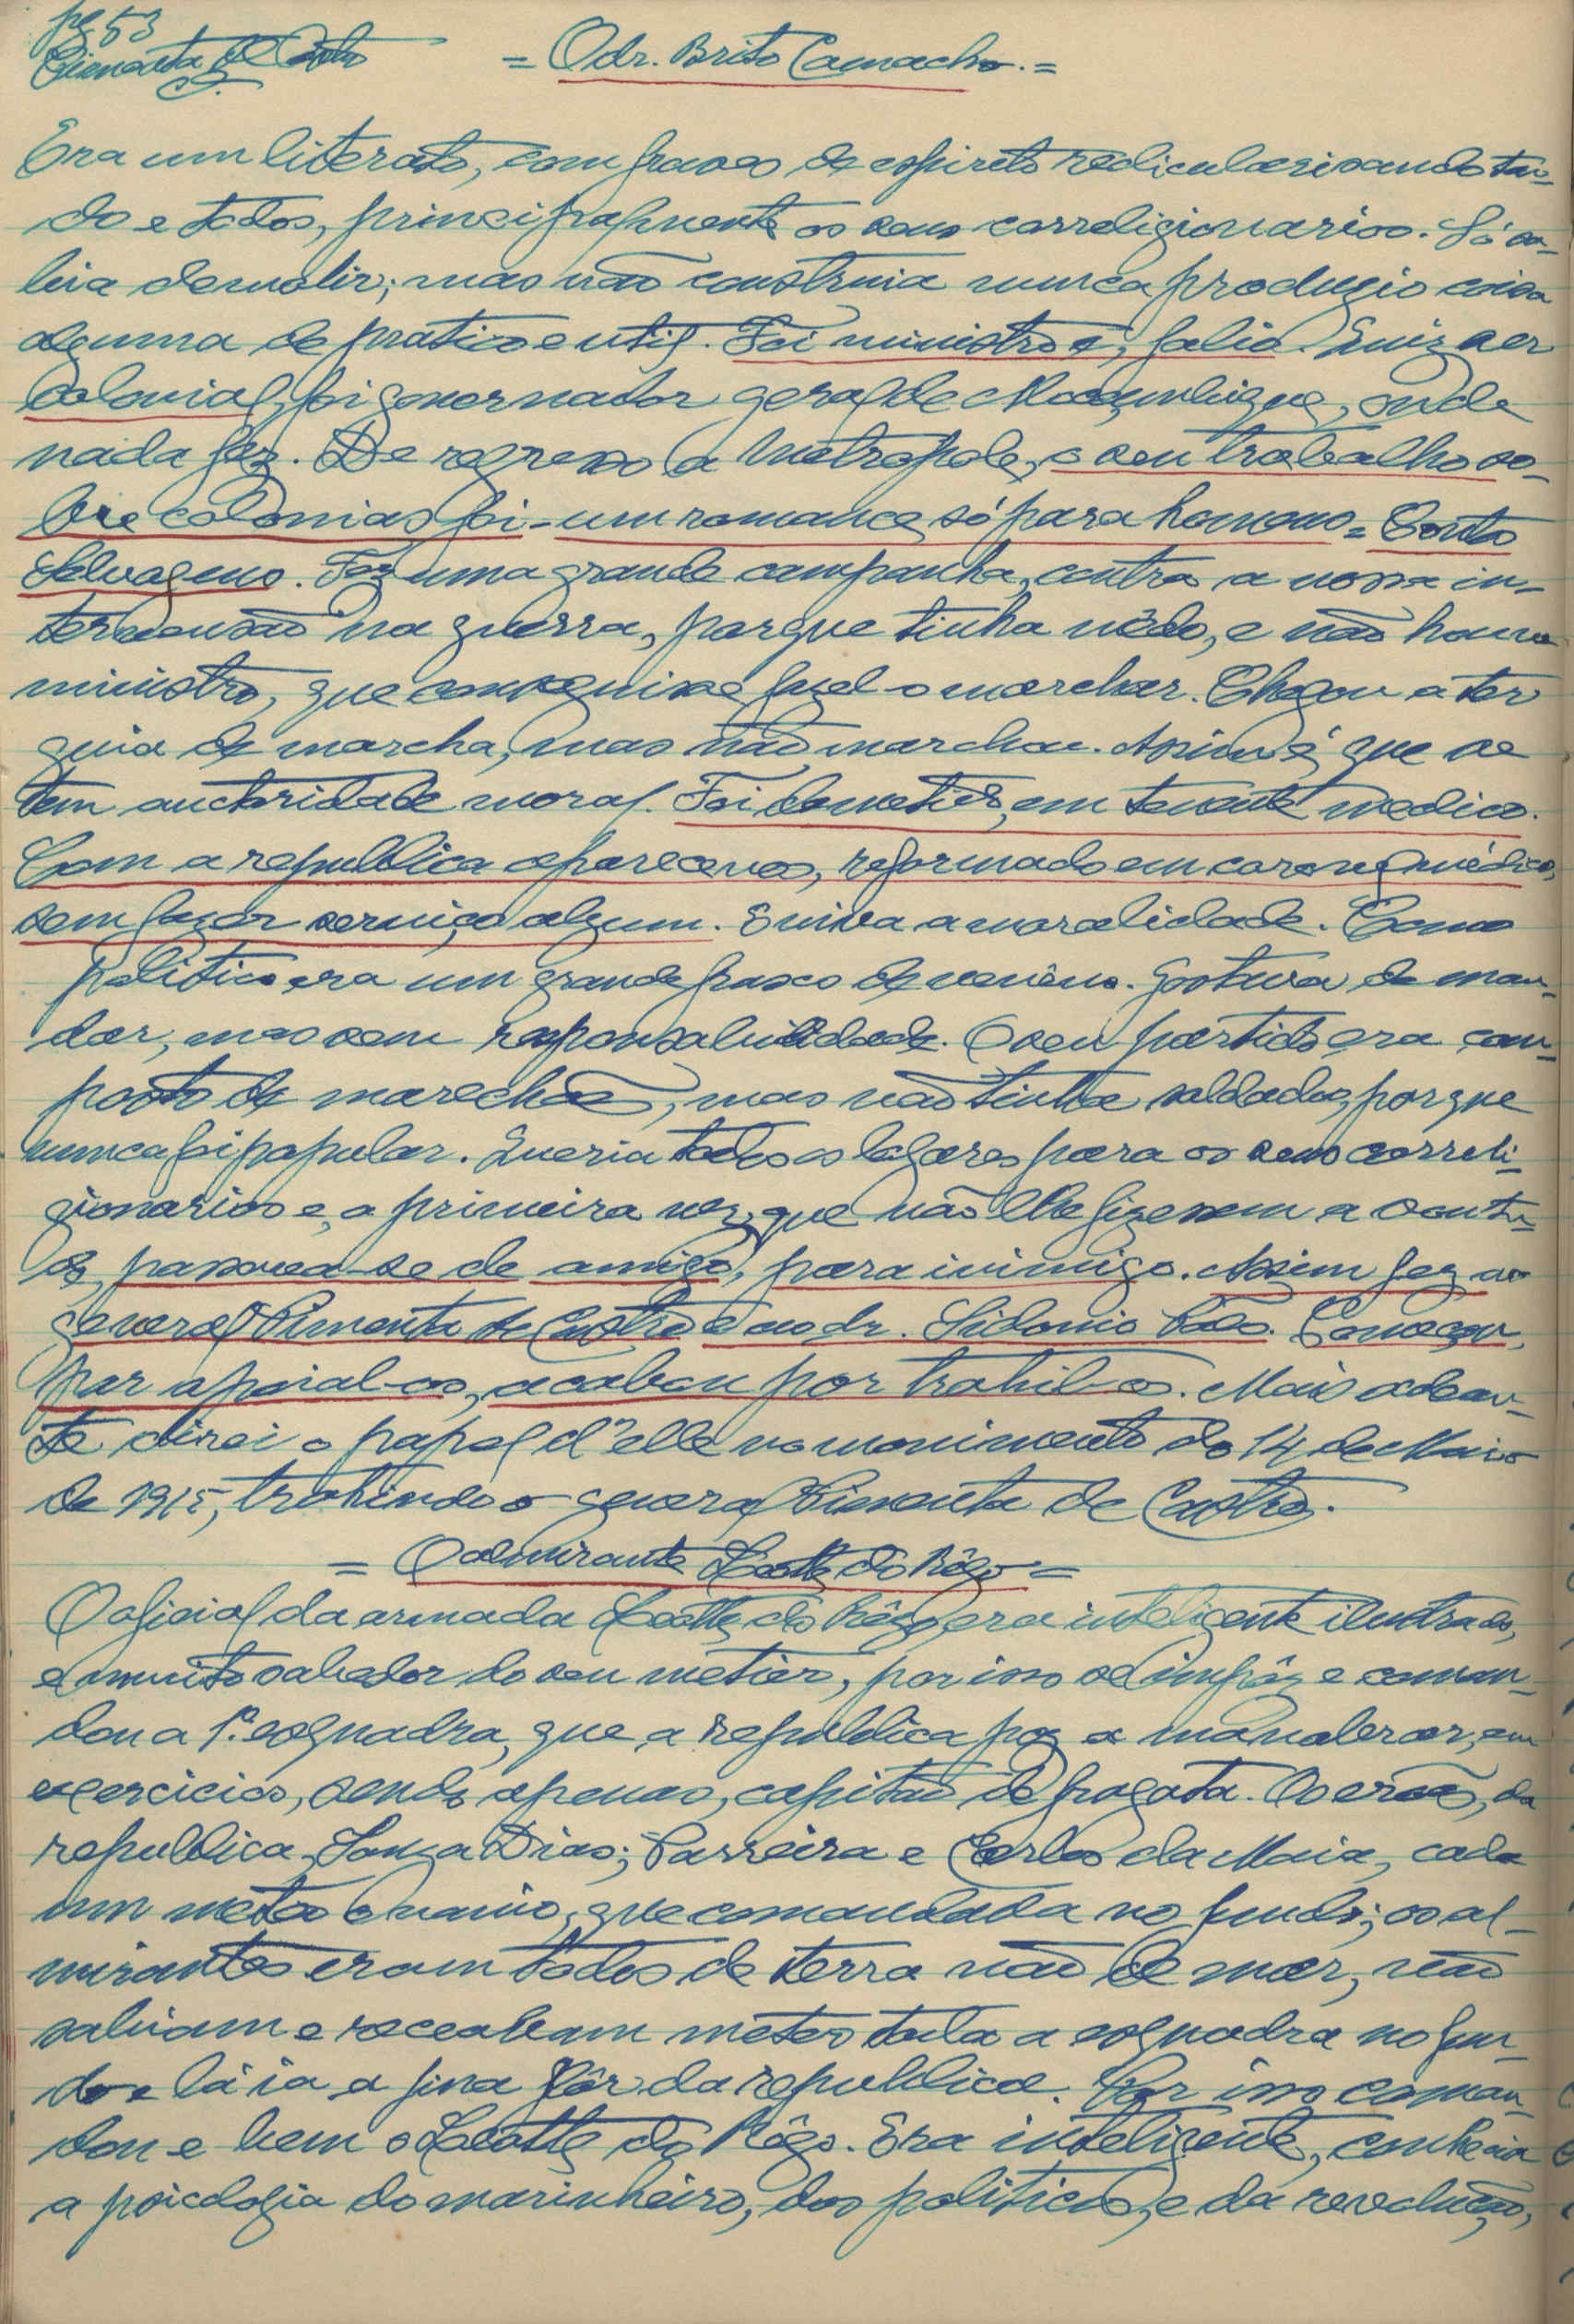 pg. 53
Pimenta de Castro
= O dr. Brito Camacho. =
Era um literato, com frases de espirito rediculárisando tu-
do e todos, principalmente os seus correligionarios. Só sa-
bia demolir; mas não construia nunca produzio coisa
alguma de pratico e util. Foi ministro e, falio. Quiz ser
colonial, foi governador geral de Moçambique, onde
nada fez. De regresso a Metropole, o seu trabalho so-
bre colonias foi - um romance só para homens = Contos
Selvagens. Fez uma grande campanha, contra a nossa in-
tervensão na guerra, porque tinha mêdo, e não houve
ministro, que conseguisse fazel-o marchar. Chegou a ter
guia de marcha, mas não marchou. Assim é que se
tem auctoridade moral. Foi demetido, em tenente medico.
Com a republica aparece-nos, reformado em coronel médico,
sem fazer serviço algum. E viva a moralidade. Como
politico era um grande frasco de venêno. Gostava de man-
dar, mas sem responsabilidade. O seu partido era com-
posto de marechaes, mas não tinha soldados, porque
nunca foi popular. Queria todos os logares para os seus correli-
gionarios e, a primeira vez, que não lhe fizessem a vonta-
de, passava-se de amigo, para inimigo. Assim fez ao
general Pimenta de Castro e ao dr. Sidonio Pais. Começou,
por apoial-os, acabou por trahil-os. Mais adean-
te direi o papel d'elle no movimento do 14 de Maio
de 1915, trahindo o general Pimenta de Castro.
= O almirante Leotte do Rêgo =
O oficial da armada Leotte do Rêgo, era inteligente ilustrado,
e muito sabedor do seu metier, por isso se impôz e coman-
dou a 1ª. esquadra, que a republica poz a manobrar, em
exercicios, sendo apenas, capitão de fragata. Os eroes, da
republica, Souza Dias; Parreira e Carlos da Maia, cada
um meteo o navio, que comandada no fundo; os al-
mirantes eram todos de terra não de mar, não
sabiam e receavam meter toda a esquadra no fun-
do e lá ia a fina flôr da republica. Por isso coman-
dou e bem o Leotte do Rêgo. Era inteligente, conhecia
a psicologia do marinheiro, dos politicos, e da revolução,